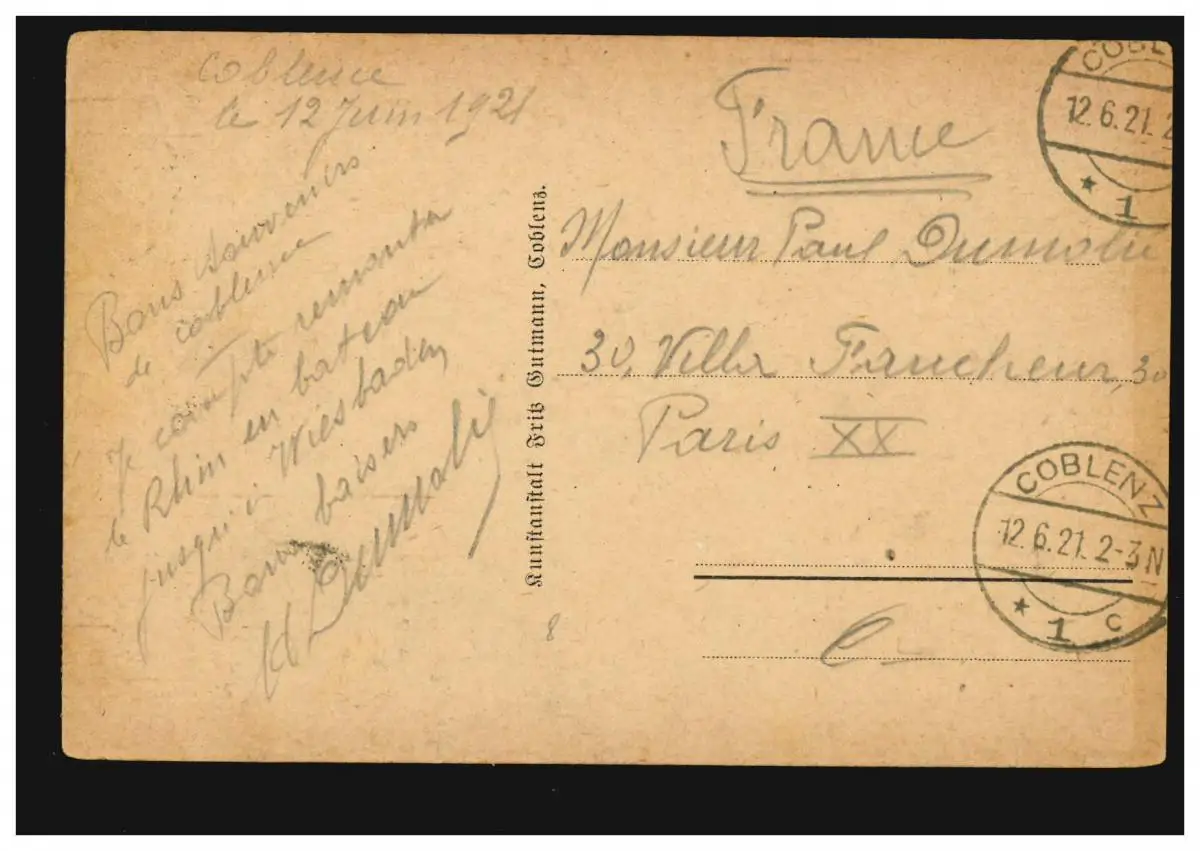 Coblence
le 12 Juin 1921
Bons souvenirs
de Coblence
Je compte remonter
le Rhin en bateau
jusqu'à Wiesbaden
Bons baisers
Kunstanstalt Fritz Gutmann, Coblenz.
8
France
Monsieur Paul
30, Villa Faucheur, 30
Paris XX
COBLENZ
12.6.21. 2
* 1
COBLENZ
12.6.21. 2-3 N
* 1 c